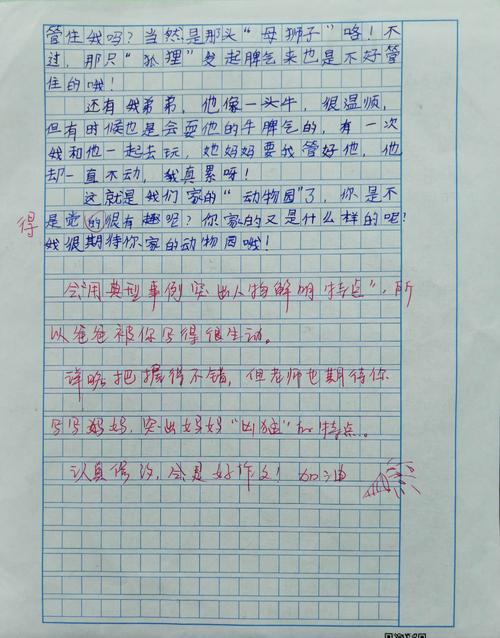 管住我吗？当然是那头“母狮子”咯！不
过，那只“狐狸”发起脾气来也是不好管
住的哦！
还有我弟弟，他像一头牛，很温顺，
但有时候也是会耍他的牛脾气的，有一次
我和他一起去玩，她妈妈要我管好他，他
却一直不动，我真累呀！
这就是我们家的“动物园”了，你是不
得
是觉的很有趣呢？你家的又是什么样的呢？
我很期待你家的动物园哦！
会用典型事例突出人物鲜明特点”，所
以爸爸被你写得很生动。
详略把握得不错，但老师也期待你
写写妈妈，突出妈妈“凶猛”的特点。
认真修改，会是好作文！加油